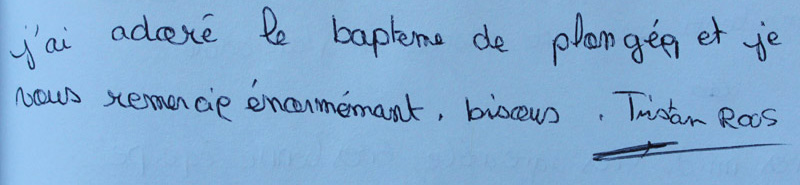 j'ai adoré le bapteme de plongée et je
vous remercie énormémant, bisous. Tristan ROOS